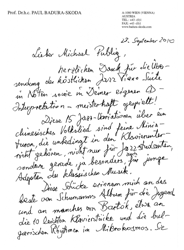 Prof. Dr.h.c. PAUL BADURA-SKODA
A-1080 WIEN-VIENNA
AUSTRIA
12. September 2010
Lieber Michael Publig,
herzlichen Dank für die
sendung der köstlichen Jazz Piano Suite
in Noten sowie in Deiner eigenen CD-
Interpretation – meisterhaft gespielt!
Diese 15 Jazz-Variationen über ein
chinesisches Volkslied sind feine
die unbedingt in den
gehören, nicht nur für Jazzstudenten,
sondern gerade ja besonders für junge
Adepten der klassischen Musik.
Diese Stücke erinnern mich an das
beste von Schumanns Album für die Jugend
und an manches von Bartók, etwa an
die 10 leichten Klavierstücke und die bul-
garischen Rhythmen im Mikrokosmos. Sie